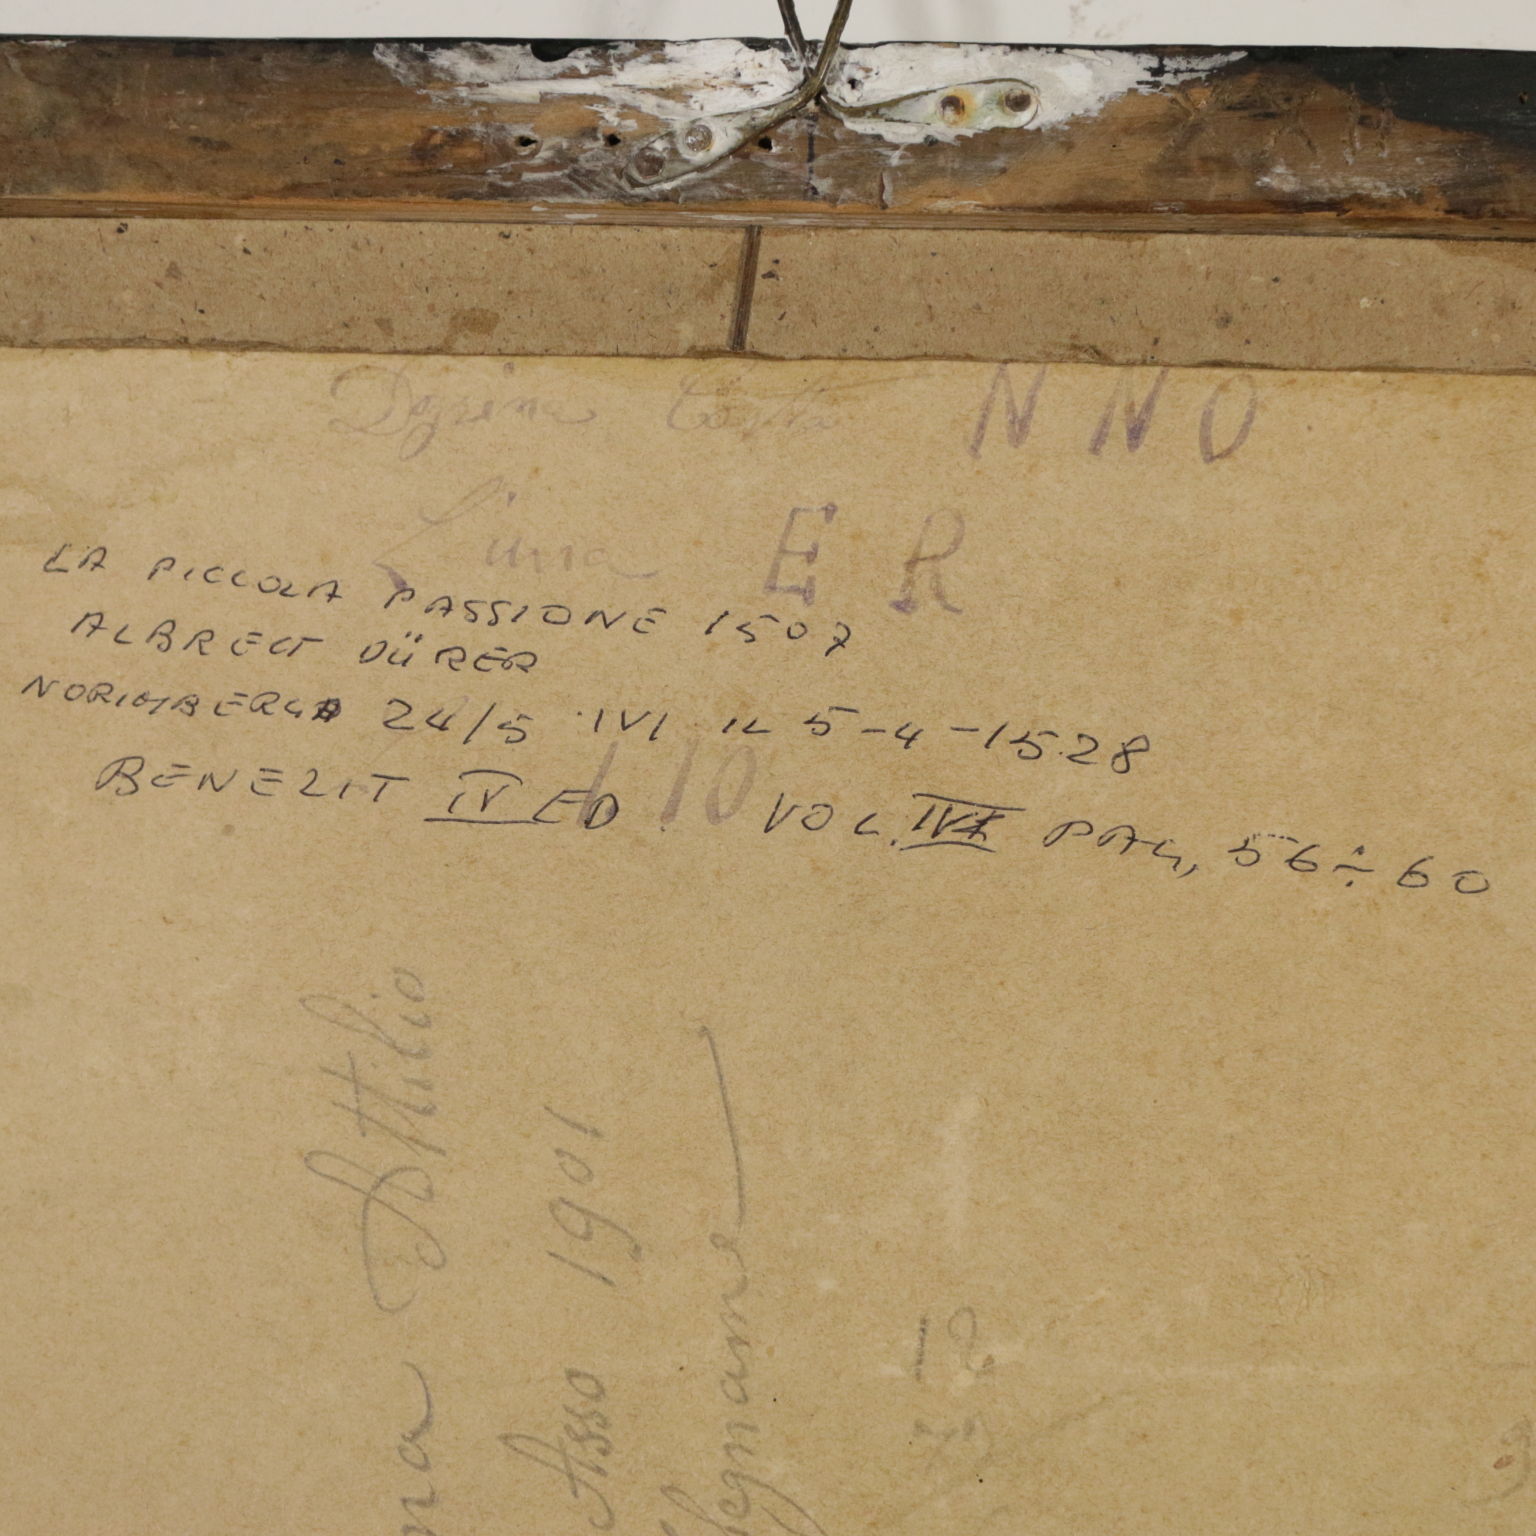 N N O
Lima E R
LA PICCOLA PASSIONE 1507
ALBRECT DÜRER
NORIMBERGA 24/5 IVI IL 5-4-1528
110
BENEZIT IV ED. VOL. IV PAG, 56÷60
Attilio
Asso 1901
legname